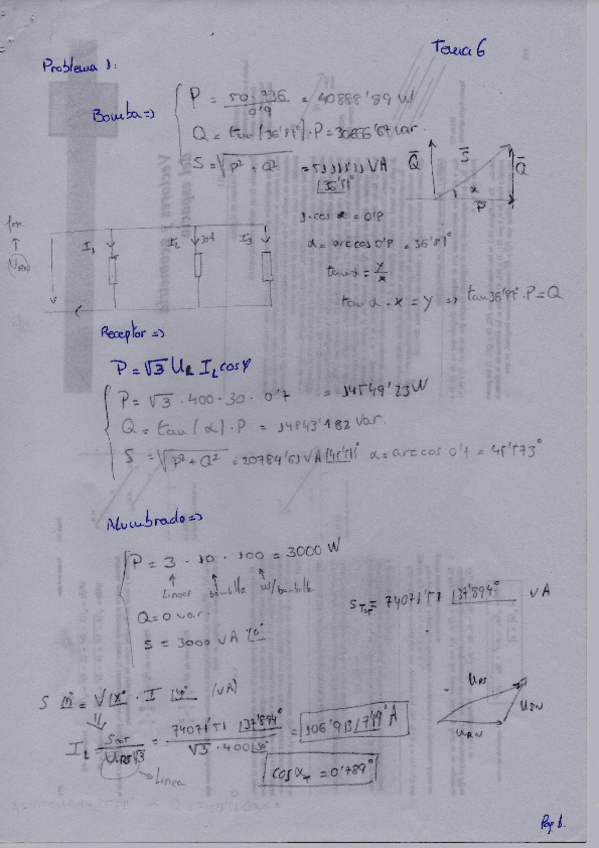 Tema 6
Problema 1:
Bomba =>
P = 50·736 / 0'9 = 40888'89 W
Q = tan(36'87°)·P = 30666'67 var.
S = √P² + Q² = VA
1·cos α = 0'8
α = arc cos 0'8 = 36'87°
tan α = y/x
tan α · x = y => tan 36'87° · P = Q
Q̄ S̄ Q̄
α
P̄
I₁ I₂ 30A I₃
U_RN
Receptor =>
P = √3 U_L I_L cos φ
P = √3 · 400 · 30 · 0'7 = 14549'23 W
Q = tan(α)·P = 14843'182 var.
S = √P² + Q² = 20784'61 VA α = arc cos 0'7 = 45'573°
Alumbrado =>
P = 3 · 10 · 100 = 3000 W
lineas bombilla W/bombilla
Q = 0 var.
S = 3000 VA ∠0°
S_Tot = 74071'51 ∠37'894° VA
(VA)
I_t = S_tot / U_RS √3 = 74071'51 ∠37'894° / √3 · 400 ∠30° = 106'913 ∠7'89° A
Linea
cos α_T = 0'789°
U_RS
U_SN
U_RN
Pag 1.